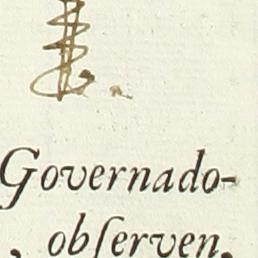 Governado-
, obſerven,